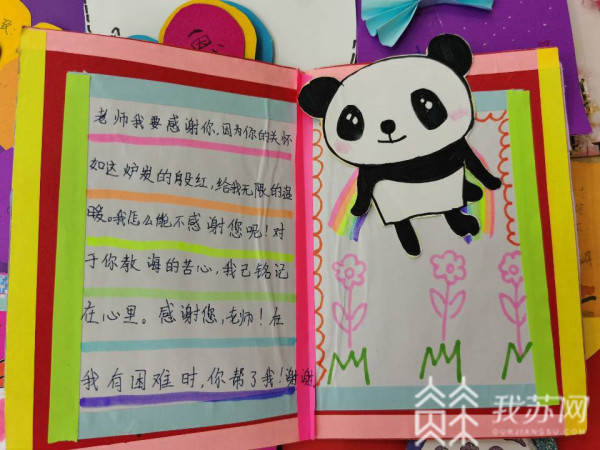 老师我要感谢你,因为你的关怀
如这炉发的般红,给我无限的温
暖。我怎么能不感谢您呢!对
于你教海的苦心,我已铭记
在心里。感谢您,老师!在
我有困难时,你帮了我!谢谢
我苏网
OURJIANGSU.COM